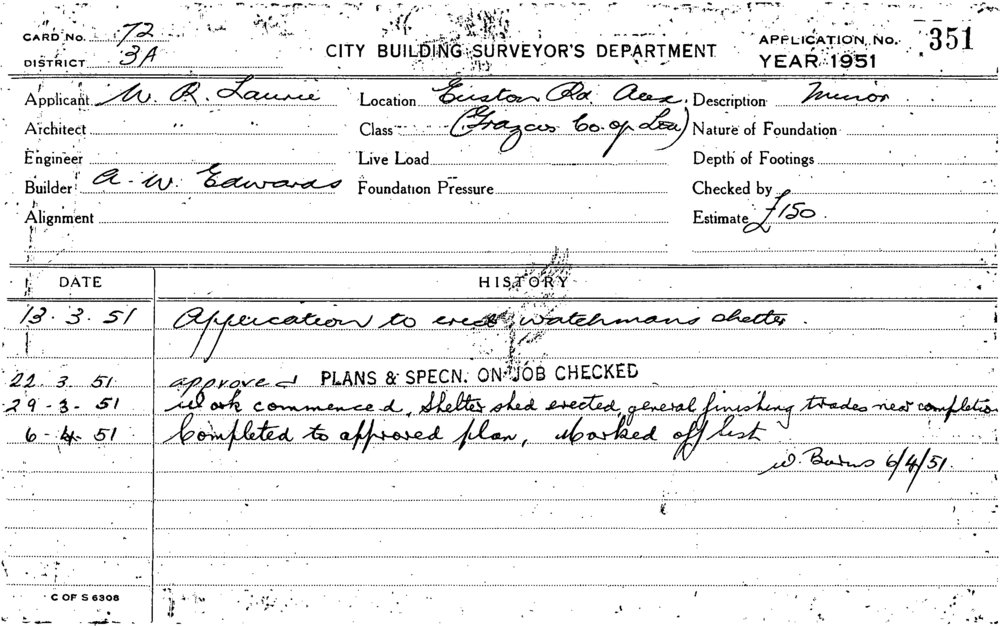 CARD No. 72
DISTRICT 3A
CITY BUILDING SURVEYOR'S DEPARTMENT
APPLICATION No. 351
YEAR 1951
Applicant W. R. Laurie Location Euston Rd. Alex. Description Minor
Architect " " Class (Grazcos Co. op Ltd) Nature of Foundation
Engineer Live Load Depth of Footings
Builder A. W. Edwards Foundation Pressure Checked by
Alignment Estimate £150.
DATE HISTORY
13. 3. 51 Application to erect watchmans shelter.
22. 3. 51 approved PLANS & SPECN. ON JOB CHECKED
29-3-51 Work commenced, Shelter shed erected, general finishing trades near completion
6-4-51 Completed to approved plan, Marked off list
W. Burns 6/4/51.
C OF S 6308